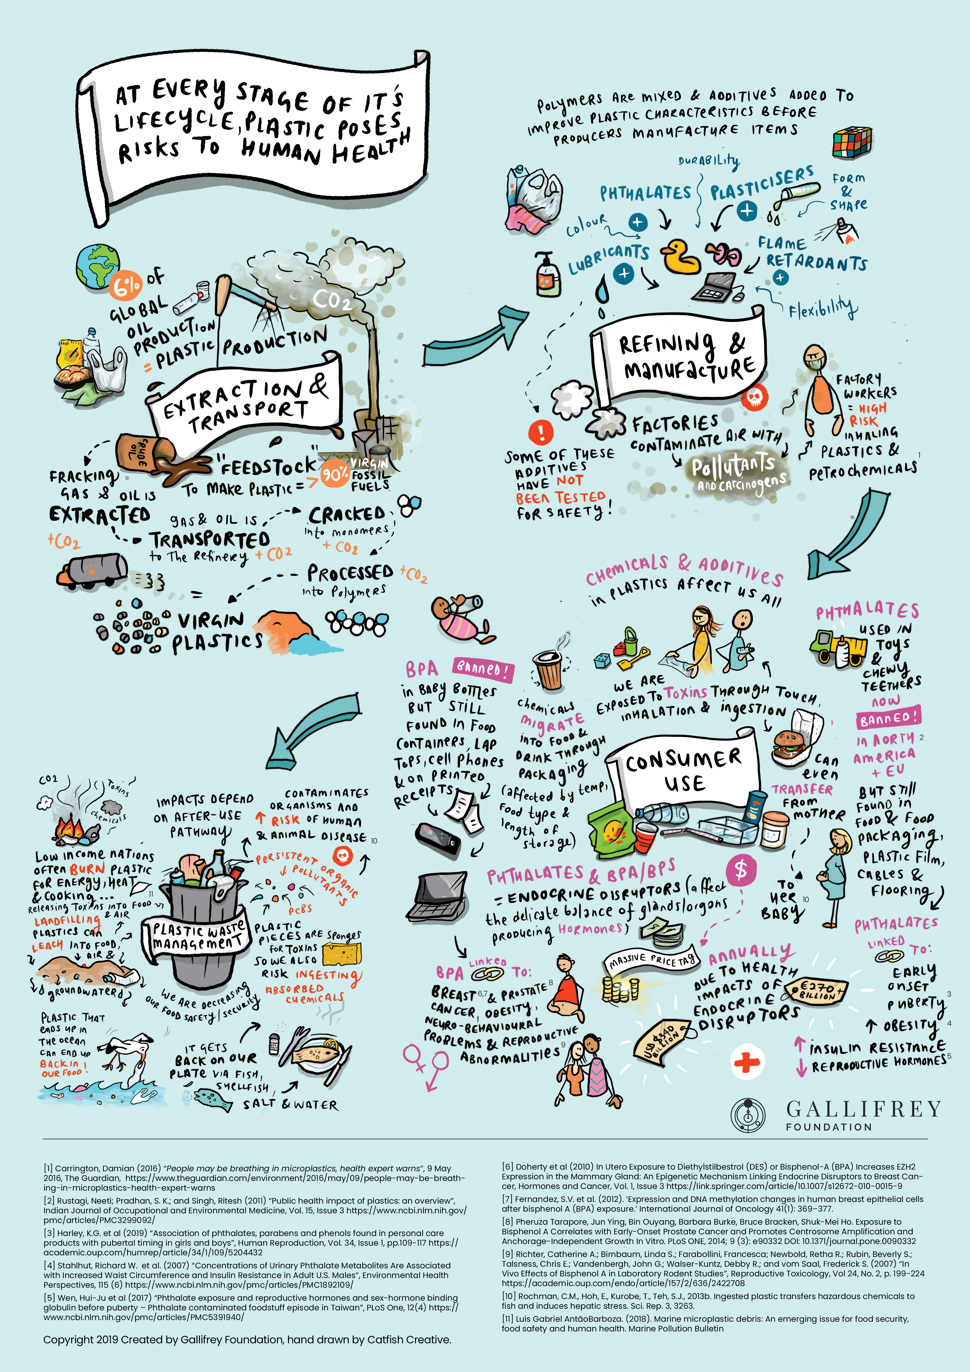 AT EVERY STAGE OF IT'S
LIFECYCLE, PLASTIC POSES
RISKS TO HUMAN HEALTH
6% OF
GLOBAL
OIL
PRODUCTION
= PLASTIC PRODUCTION
CO2
EXTRACTION &
TRANSPORT
CRUDE
OIL
"FEEDSTOCK"
TO MAKE PLASTIC =
> 90% VIRGIN
FOSSIL
FUELS
FRACKING
GAS & OIL IS
EXTRACTED
+CO2
GAS & OIL IS
TRANSPORTED
to The Refinery + CO2
CRACKED
into monomers
+ CO2
PROCESSED +CO2
into Polymers
=
VIRGIN
PLASTICS
Polymers are mixed & additives added to
improve plastic characteristics before
producers manufacture items
DURABILITY
PHTHALATES
PLASTICISERS
FORM
&
SHAPE
Colour
LUBRICANTS
FLAME
RETARDANTS
Flexibility
REFINING &
MANUFACTURE
!
SOME OF THESE
ADDITIVES
HAVE NOT
BEEN TESTED
FOR SAFETY!
FACTORIES
CONTAMINATE AIR WITH
Pollutants
AND CARCINOGENS
FACTORY
WORKERS
= HIGH
RISK
INHALING
PLASTICS &
PETROCHEMICALS 1
CHEMICALS & ADDITIVES
in PLASTICS AFFECT US ALL
WE ARE
EXPOSED TO TOXINS THROUGH TOUCH,
INHALATION & INGESTION
CONSUMER
USE
BPA Banned!
in BABY BOTTLES
BUT STILL
FOUND IN FOOD
CONTAINERS, LAP
TOPS, cell phones
& ON PRINTED
RECEIPTS
chemicals
MIGRATE
into FOOD &
DRINK THROUGH
PACKAGING
(affected by temp,
food type &
length of
storage)
PHTHALATES
USED IN
TOYS
&
CHEWY
TEETHERS
NOW
BANNED!
IN NORTH 2
AMERICA
+ EU
BUT STILL
FOUND in
FOOD & FOOD
packaging,
PLASTIC FILM,
CABLES &
FLOORING
CAN
even
TRANSFER
FROM
MOTHER
TO
HER 10
BABY
PHTHALATES & BPA/BPS
= ENDOCRINE DISRUPTORS (affect
the delicate balance of glands/organs
producing HORMONES)
$
BPA LINKED TO:
BREAST 6,7 & PROSTATE 8
CANCER, OBESITY,
NEURO-BEHAVIOURAL
PROBLEMS & REPRODUCTIVE
ABNORMALITIES 9
MASSIVE PRICE TAG
ANNUALLY
DUE TO HEALTH
IMPACTS OF
ENDOCRINE
DISRUPTORS
€270+
BILLION
USD $340
BILLION
PHTHALATES
LINKED
TO:
EARLY
ONSET
PUBERTY 3
↑ OBESITY 4
↑ INSULIN RESISTANCE
↓ REPRODUCTIVE HORMONES 5
CO2
Toxins
chemicals
LOW INCOME NATIONS
OFTEN BURN PLASTIC
FOR ENERGY, HEAT
& COOKING...
RELEASING TOXINS INTO FOOD
& AIR
11
LANDFILLING
PLASTICS CAN
LEACH INTO FOOD,
AIR &
GROUNDWATER
PLASTIC THAT
ENDS UP IN
THE OCEAN
CAN END UP
BACK IN!
OUR FOOD!
IMPACTS DEPEND
ON AFTER-USE
PATHWAY
CONTAMINATES
ORGANISMS AND
↑ RISK OF HUMAN
& ANIMAL DISEASE 10
PERSISTENT ORGANIC
POLLUTANTS
PCBS
PLASTIC WASTE
MANAGEMENT
PLASTIC
PIECES ARE SPONGES
FOR TOXINS
SO WE ALSO
RISK INGESTING
ABSORBED
CHEMICALS
WE ARE DECREASING
OUR FOOD SAFETY / SECURITY
IT GETS
BACK ON OUR
PLATE VIA FISH,
SHELLFISH,
SALT & WATER
GALLIFREY
FOUNDATION
[1] Carrington, Damian (2016) "People may be breathing in microplastics, health expert warns", 9 May
2016, The Guardian, https://www.theguardian.com/environment/2016/may/09/people-may-be-breath-
ing-in-microplastics-health-expert-warns
[2] Rustagi, Neeti; Pradhan, S. K.; and Singh, Ritesh (2011) "Public health impact of plastics: an overview",
Indian Journal of Occupational and Environmental Medicine, Vol. 15, Issue 3 https://www.ncbi.nlm.nih.gov/
pmc/articles/PMC3299092/
[3] Harley, K.G. et al (2019) "Association of phthalates, parabens and phenols found in personal care
products with pubertal timing in girls and boys", Human Reproduction, Vol. 34, Issue 1, pp.109-117 https://
academic.oup.com/humrep/article/34/1/109/5204432
[4] Stahlhut, Richard W. et al. (2007) "Concentrations of Urinary Phthalate Metabolites Are Associated
with Increased Waist Circumference and Insulin Resistance in Adult U.S. Males", Environmental Health
Perspectives, 115 (6) https://www.ncbi.nlm.nih.gov/pmc/articles/PMC1892109/
[5] Wen, Hui-Ju et al (2017) "Phthalate exposure and reproductive hormones and sex-hormone binding
globulin before puberty – Phthalate contaminated foodstuff episode in Taiwan", PLoS One, 12(4) https://
www.ncbi.nlm.nih.gov/pmc/articles/PMC5391940/
Copyright 2019 Created by Gallifrey Foundation, hand drawn by Catfish Creative.
[6] Doherty et al (2010) In Utero Exposure to Diethylstilbestrol (DES) or Bisphenol-A (BPA) Increases EZH2
Expression in the Mammary Gland: An Epigenetic Mechanism Linking Endocrine Disruptors to Breast Can-
cer, Hormones and Cancer, Vol. 1, Issue 3 https://link.springer.com/article/10.1007/s12672-010-0015-9
[7] Fernandez, S.V. et al. (2012). 'Expression and DNA methylation changes in human breast epithelial cells
after bisphenol A (BPA) exposure.' International Journal of Oncology 41(1): 369–377.
[8] Pheruza Tarapore, Jun Ying, Bin Ouyang, Barbara Burke, Bruce Bracken, Shuk-Mei Ho. Exposure to
Bisphenol A Correlates with Early-Onset Prostate Cancer and Promotes Centrosome Amplification and
Anchorage-Independent Growth in Vitro. PLoS ONE, 2014; 9 (3): e90332 DOI: 10.1371/journal.pone.0090332
[9] Richter, Catherine A.; Birnbaum, Linda S.; Farabollini, Francesca; Newbold, Retha R.; Rubin, Beverly S.;
Talsness, Chris E.; Vandenbergh, John G.; Walser-Kuntz, Debby R.; and vom Saal, Frederick S. (2007) "In
Vivo Effects of Bisphenol A in Laboratory Rodent Studies", Reproductive Toxicology, Vol 24, No. 2, p. 199-224
https://academic.oup.com/endo/article/157/2/636/2422708
[10] Rochman, C.M., Hoh, E., Kurobe, T., Teh, S.J., 2013b. Ingested plastic transfers hazardous chemicals to
fish and induces hepatic stress. Sci. Rep. 3, 3263.
[11] Luís Gabriel AntãoBarboza. (2018). Marine microplastic debris: An emerging issue for food security,
food safety and human health. Marine Pollution Bulletin